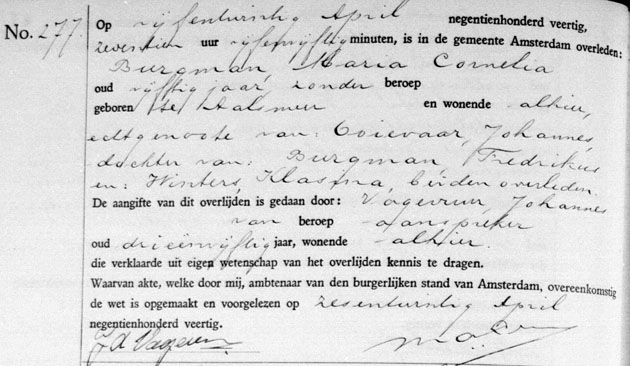 No. 277. Op vijfentwintig April negentienhonderd veertig,
zeventien uur vijfenvijftig minuten, is in de gemeente Amsterdam overleden:
Burgman, Maria Cornelia
oud vijftig jaar, zonder beroep
geboren te Aalsmeer en wonende alhier,
echtgenoote van: Ooievaar, Johannes,
dochter van: Burgman Fredrikus
en: Winters, Klasina, beiden overleden.
De aangifte van dit overlijden is gedaan door: Johannes
van beroep aanspreker
oud drieënvijftig jaar, wonende alhier.
die verklaarde uit eigen wetenschap van het overlijden kennis te dragen.
Waarvan akte, welke door mij, ambtenaar van den burgerlijken stand van Amsterdam, overeenkomstig
de wet is opgemaakt en voorgelezen op zesentwintig April
negentienhonderd veertig.